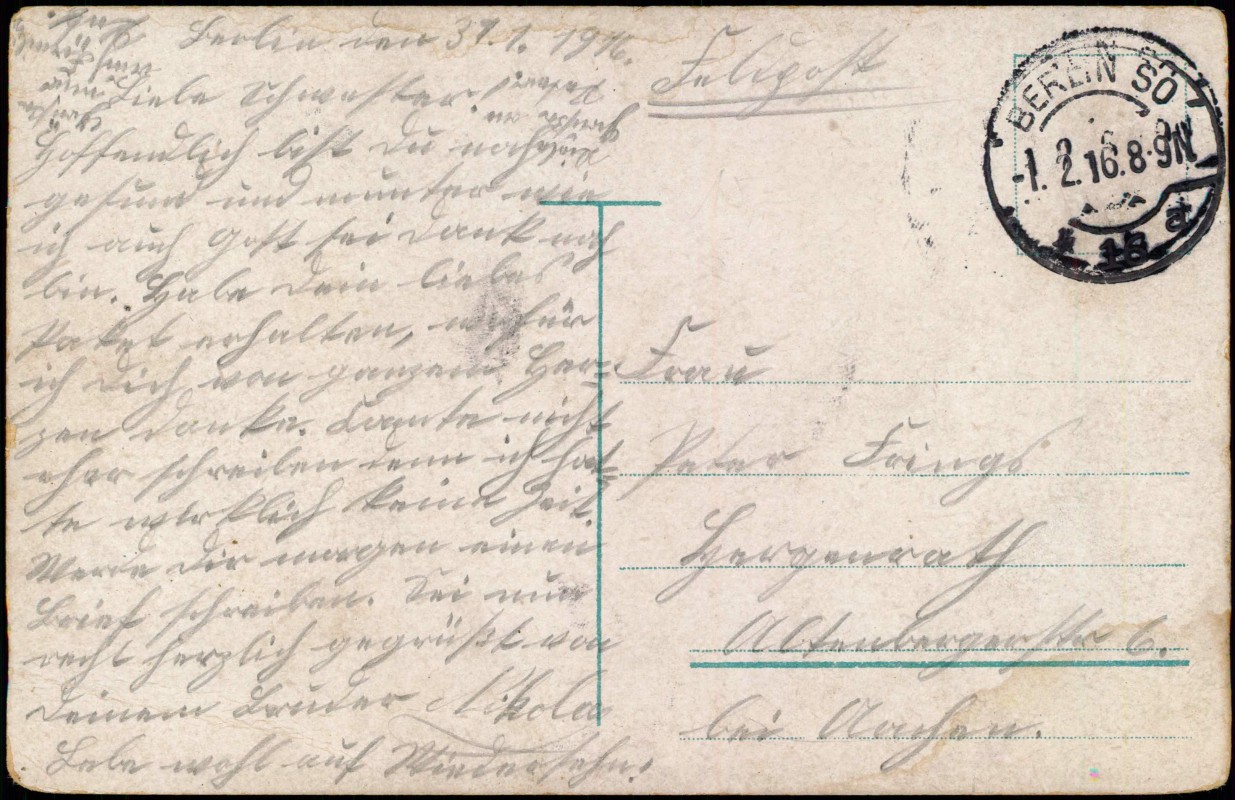 Berlin den 31.1.1916.
Liebe Schwester
Hoffendlich bist Du noch
gesund und munter wie
ich auch Gott sei Dank noch
bin. Habe Dein liebes
Paket erhalten, wofür
ich Dich von ganzem Her-
zen danke. Konnte nicht
eher schreiben denn ich hat-
te wirklich keine Zeit.
Werde Dir morgen einen
Brief schreiben. Sei nun
recht herzlich gegrüßt von
Deinem Bruder Nikola
Lebe wohl auf Wiedersehn!
Feldpost
BERLIN SO
-1.2.16.8-9N
* 16 a
Frau
Peter Frings
Hergenrath
Altenbergerstr 6.
bei Aachen.